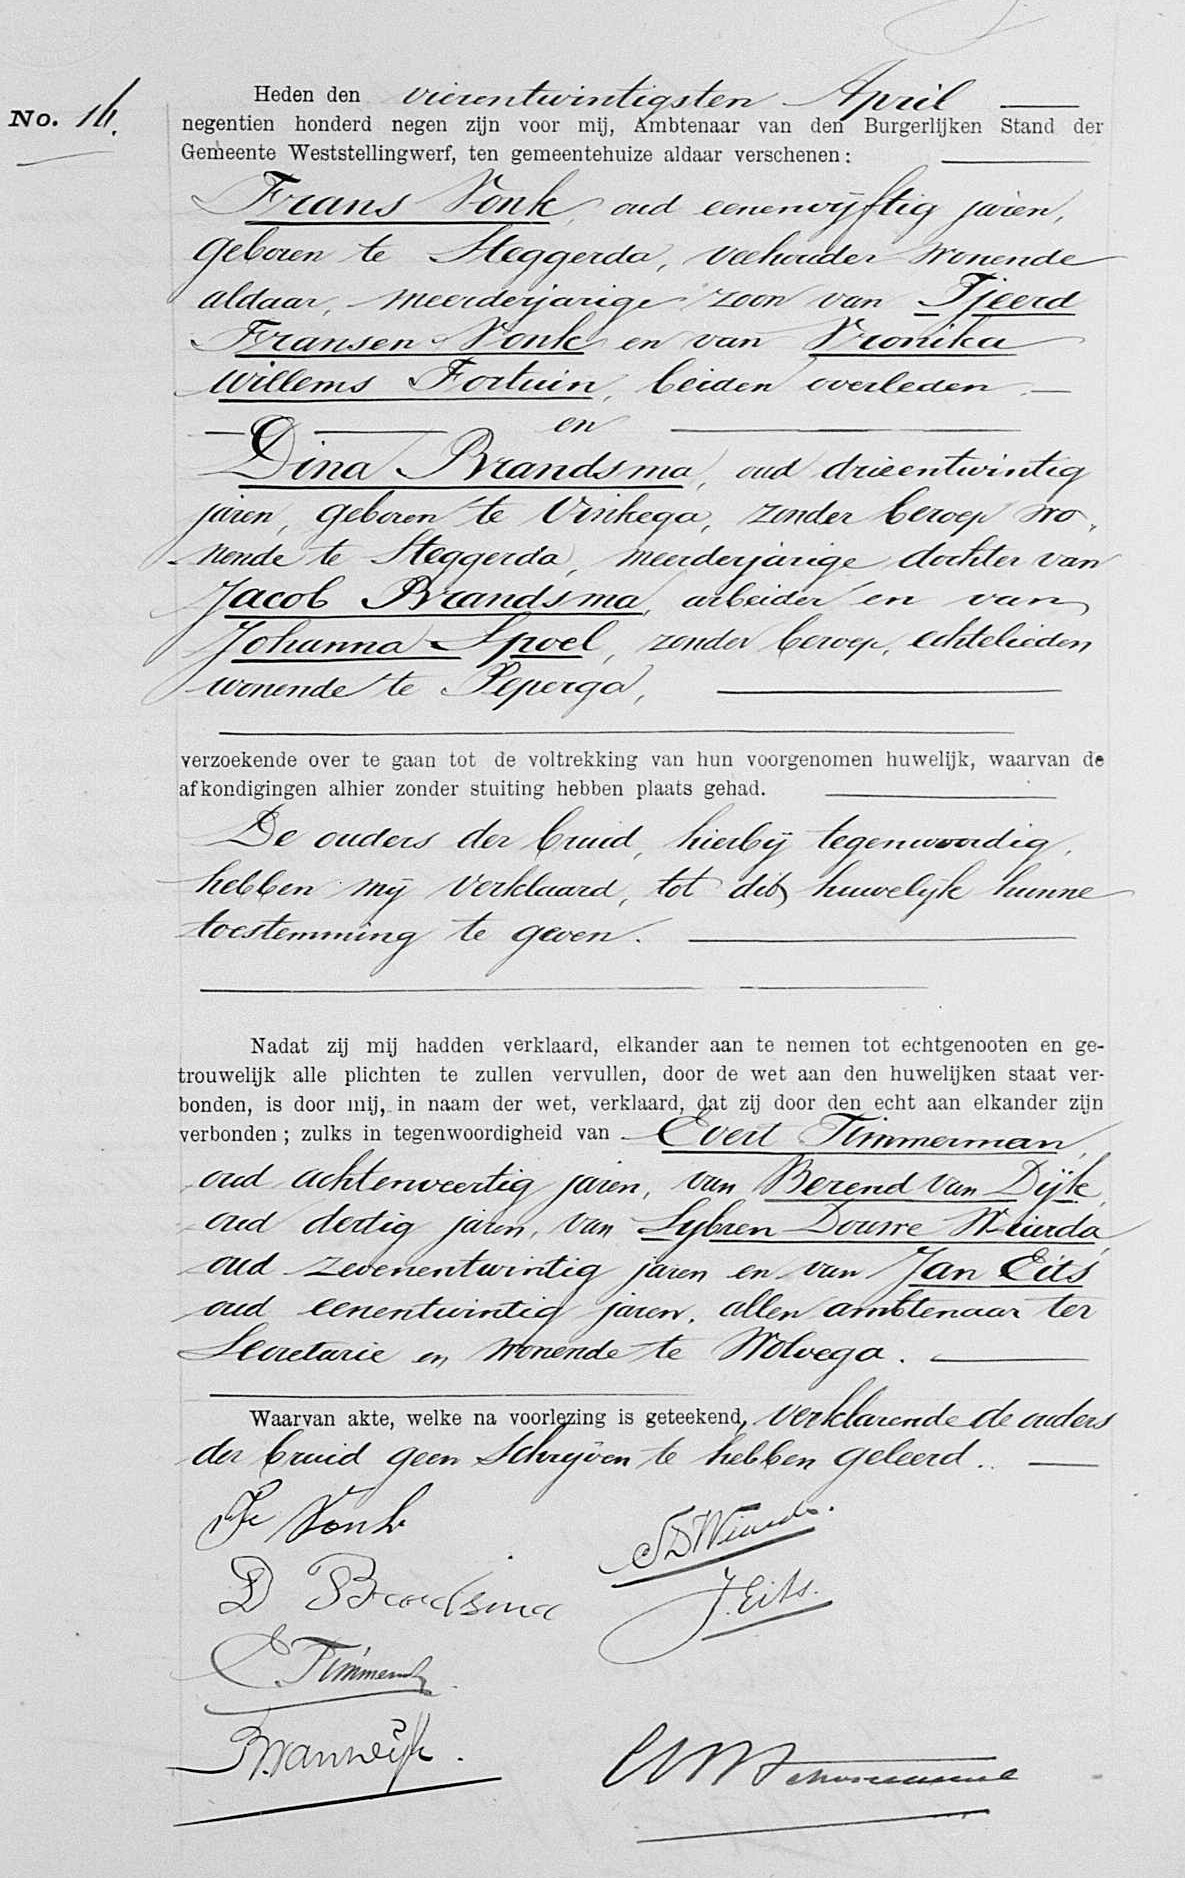 No. 14.
Heden den vierentwintigsten April
negentien honderd negen zijn voor mij, Ambtenaar van den Burgerlijken Stand der
Gemeente Weststellingwerf, ten gemeentehuize aldaar verschenen:
Frans Vonk, oud eenenvijftig jaren,
geboren te Steggerda, veehouder wonende
aldaar, meerderjarige zoon van Tjeerd
Fransen Vonk en van Vronika
Willems Fortuin, beiden overleden
en
Dina Brandsma, oud drieentwintig
jaren, geboren te Vinkega, zonder beroep wo-
nende te Steggerda, meerderjarige dochter van
Jacob Brandsma, arbeider en van
Johanna Spoel, zonder beroep, echtelieden
wonende te Peperga,
verzoekende over te gaan tot de voltrekking van hun voorgenomen huwelijk, waarvan de
afkondigingen alhier zonder stuiting hebben plaats gehad.
De ouders der bruid, hierbij tegenwoordig,
hebben mij verklaard, tot dit huwelijk hunne
toestemming te geven.
Nadat zij mij hadden verklaard, elkander aan te nemen tot echtgenooten en ge-
trouwelijk alle plichten te zullen vervullen, door de wet aan den huwelijken staat ver-
bonden, is door mij, in naam der wet, verklaard, dat zij door den echt aan elkander zijn
verbonden; zulks in tegenwoordigheid van Evert Timmerman,
oud achtenveertig jaren, van Berend van Dijk,
oud dertig jaren, van Sybren Douwe Wiarda
oud zevenentwintig jaren en van Jan Eits
oud eenentwintig jaren, allen ambtenaar ter
Secretarie en wonende te Wolvega.
Waarvan akte, welke na voorlezing is geteekend, verklarende de ouders
der bruid geen schrijven te hebben geleerd.
Fr Vonk
SDWiarda.
D Brandsma
J. Eits.
E. Timmerman
B van Dijk.